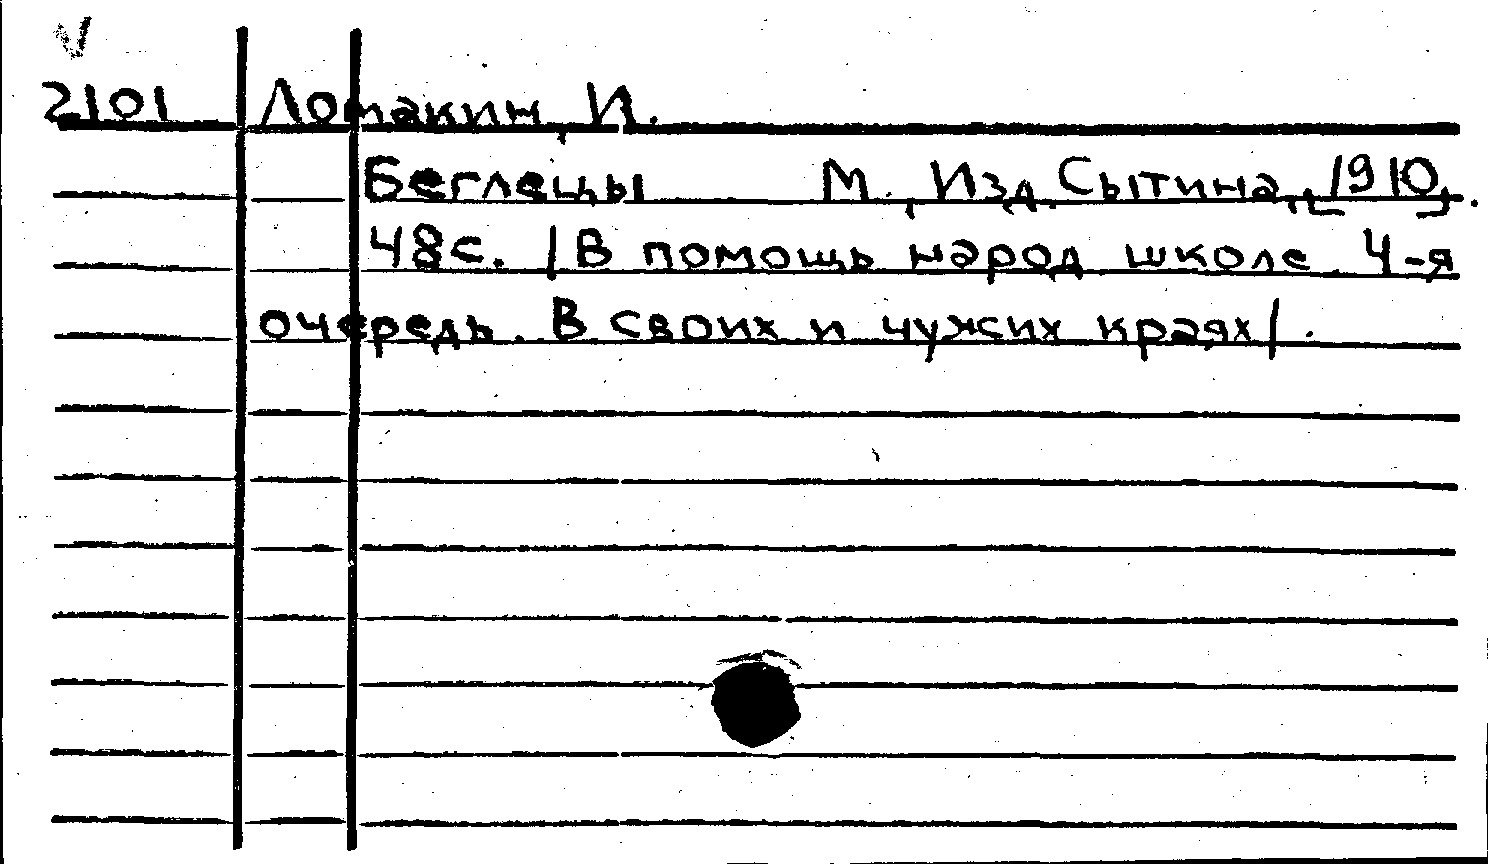 V
2101 Ломакин, И.
Беглецы М., Изд. Сытина, [1910].
48с. /В помощь народ школе. 4-я
очередь. В своих и чужих краях/.